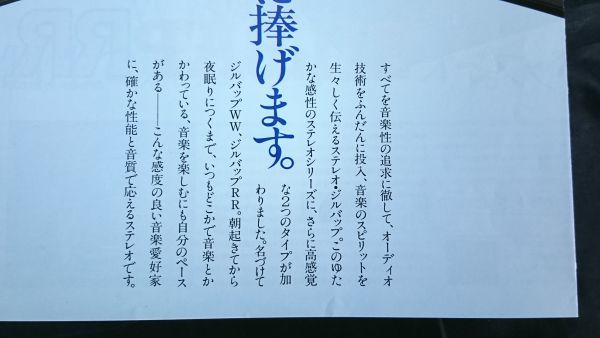 に捧げます。
すべてを音楽性の追求に徹して、オーディオ
技術をふんだんに投入、音楽のスピリットを
生々しく伝えるステレオ・ジルバップ。このゆた
かな感性のステレオシリーズに、さらに高感覚
な2つのタイプが加
わりました。名づけて
ジルバップWW、ジルバップRR。朝起きてから
夜眠りにつくまで、いつもどこかで音楽とか
かわっている、音楽を楽しむにも自分のペース
がある——こんな感度の良い音楽愛好家
に、確かな性能と音質で応えるステレオです。